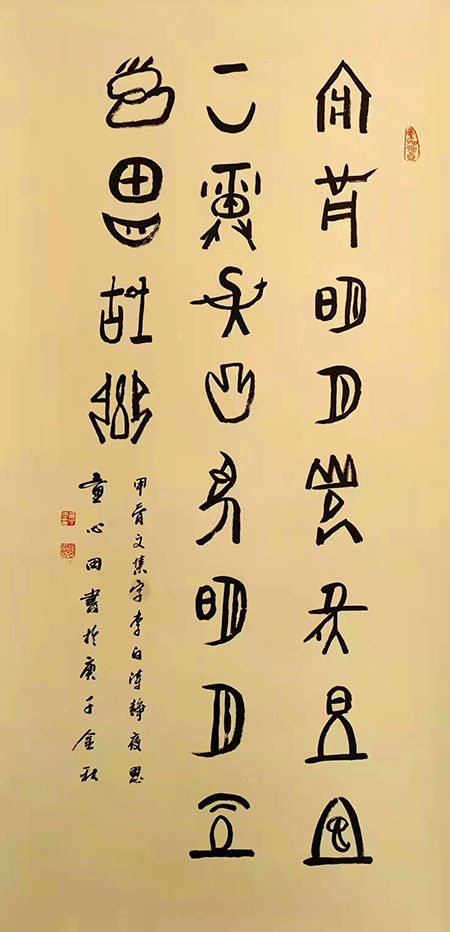 床前明月光疑是地
上霜舉頭望明月低
頭思故鄉
甲骨文集字李白詩靜夜思
童心田書於庚子金秋